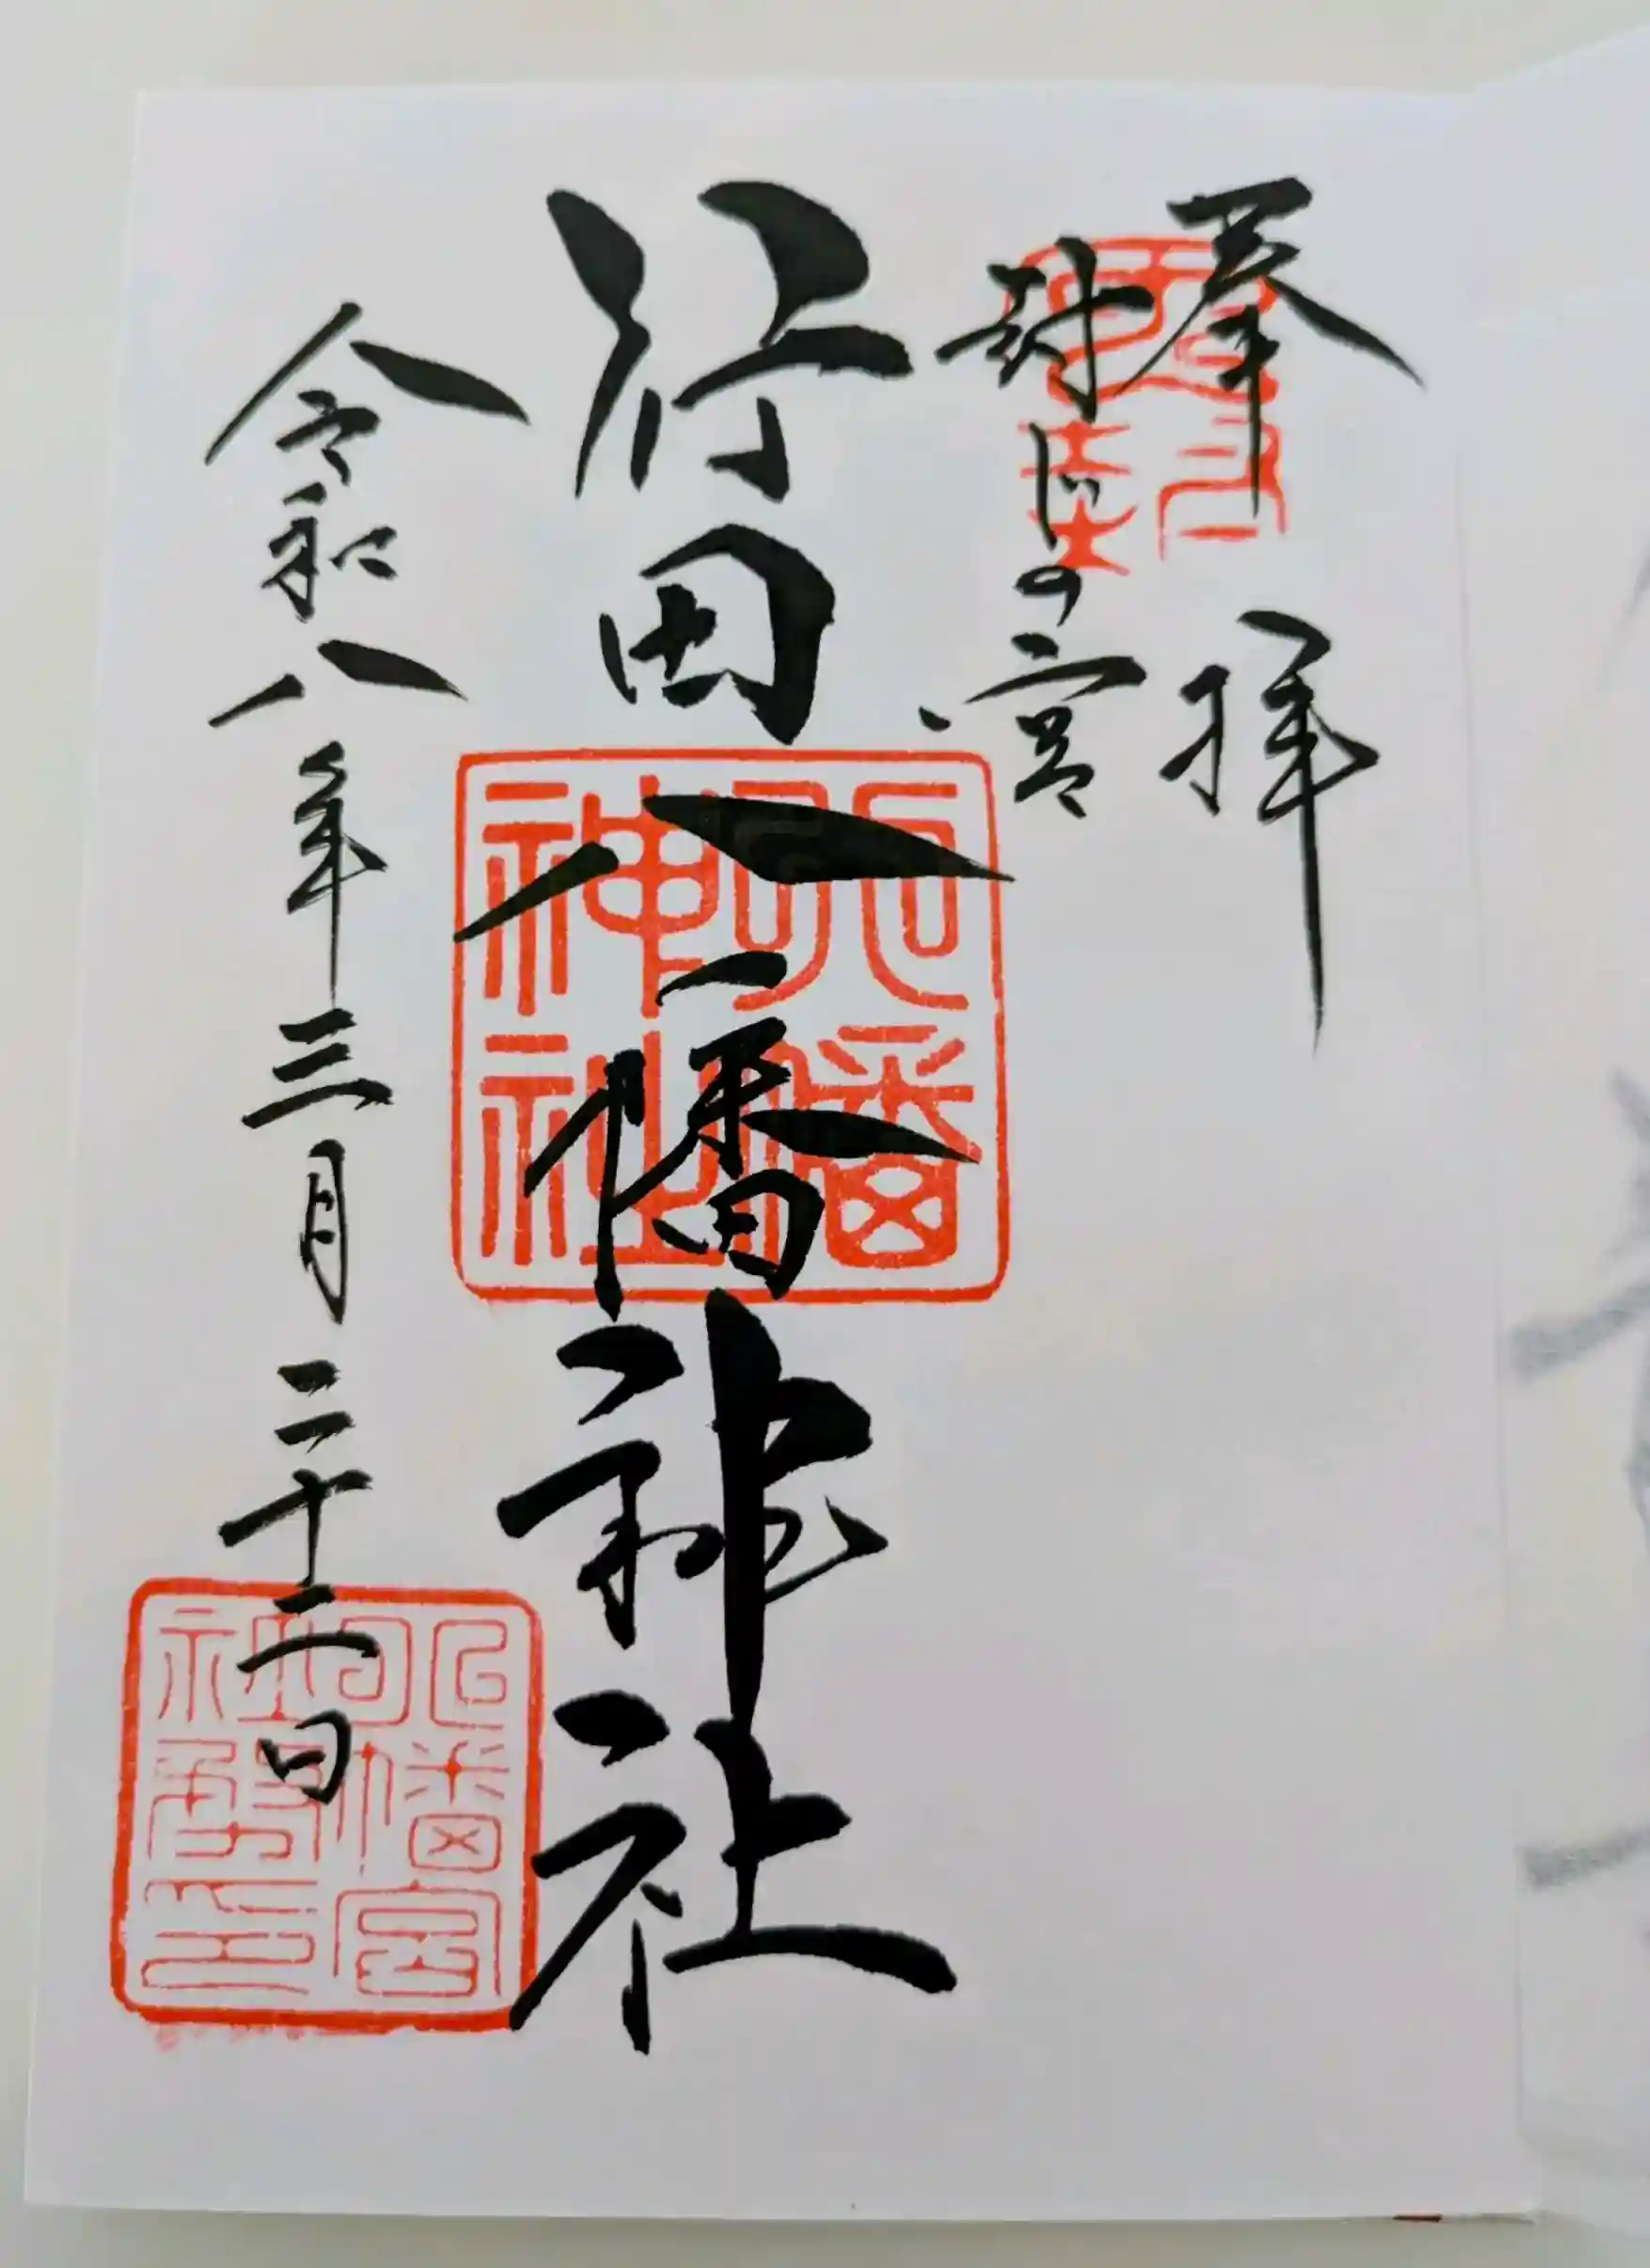 奉拝
封じの宮
行田八幡神社
八幡
神社
令和八年三月二十二日